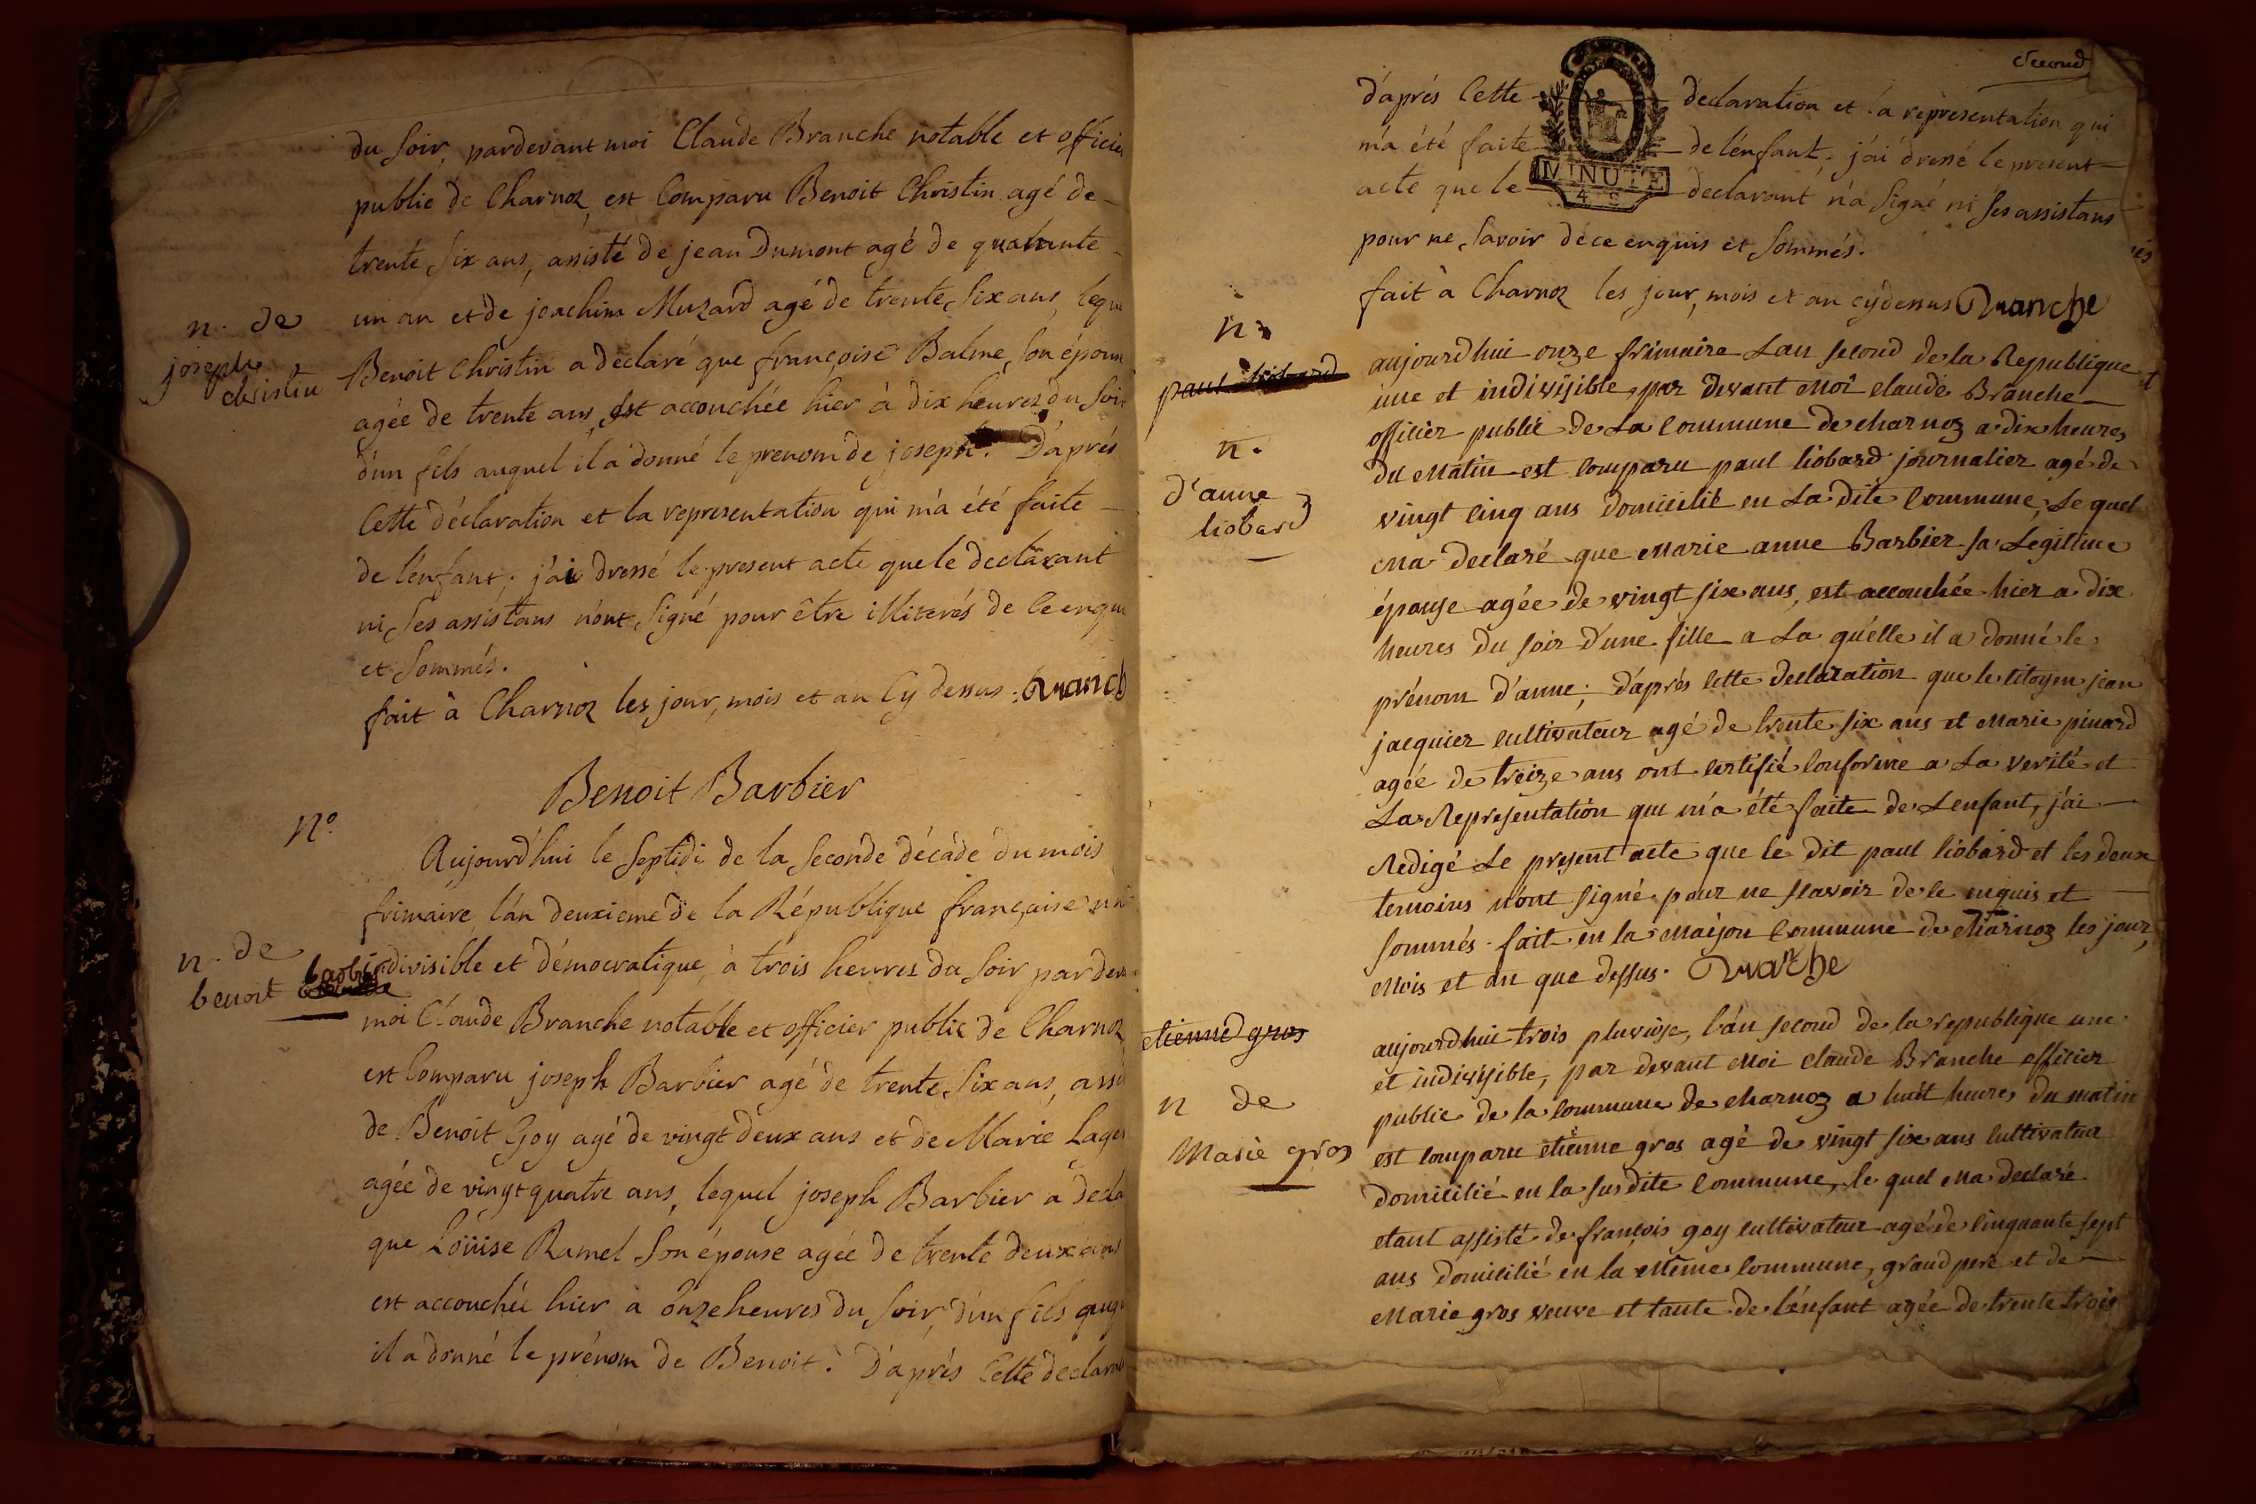 du soir, pardevant moi Claude Branche notable et officier
public de Charnoz, est Comparu Benoit Christin agé de
trente six ans, assisté de jean Dumont agé de quarante
un an et de joachim Muzard agé de trente six ans, leque
n. de
joseph
christin
Benoit Christin a déclaré que françoise Balme, son épouse
agée de trente ans, est accouchée hier à dix heures du soir
d'un fils auquel il a donné le prenom de joseph. D'après
Cette déclaration et la representation qui m'a été faite
de l'enfant; j'ai dressé le present acte que le declarant
ni ses assistans n'ont signé pour être illiterés de ce enqui
et sommés.
fait à Charnoz les jour, mois et an Cy dessus. Branch
Benoit Barbier
N°
Aujourd'hui le septidi de la seconde décade du mois
frimaire, l'an deuxieme de la République française un
n. de
benoit barbier
indivisible et démocratique, à trois heures du soir par deva
moi Claude Branche notable et officier public de Charnoz
est Comparu joseph Barbier agé de trente six ans, assi
de Benoit Goy agé de vingt deux ans et de Marie Lage
agée de vingt quatre ans, lequel joseph Barbier a decla
que Loüise Ramel son épouse agée de trente deux ans
est accouchée hier à onze heures du soir, d'un fils auqu
il a donné le prénom de Benoit. D'après Cette declara
second
d'après Cette declaration et la representation qui
m'a été faite de l'enfant; j'ai dressé le present
acte que le declarant n'a signé ni ses assistans
MINUTE
4 S
pour ne savoir de ce enquis et sommés.
fait à Charnoz les jour, mois et an cy dessus Branche
n
paul liobard
n.
d'anne
liobard
aujourdhui onze frimaire Lan second de la Republique
une et indivisible, par devant moi claude Branche
officier public de La Commune de charnoz a dix heures
du matin est comparu paul liobard journalier agé de
vingt cinq ans domicilié en La dite Commune, Le quel
ma declaré que marie anne Barbier sa Legitime
épouse agée de vingt six ans, est accouchée hier a dix
heures du soir d'une fille a La qu'elle il a donné le
prénom d'anne; d'après cette declaration que le citoyen jean
jacquier cultivateur agé de trente six ans et marie pinard
agée de treize ans ont certifié conforme a La verité et
La Representation qui m'a été faite de Lenfant, j'ai
Redigé Le present acte que le dit paul liobard et les deux
temoins n'ont signé pour ne scavoir de ce enquis et
sommés. fait en la maison Commune de charnoz les jour,
mois et an que dessus. Branche
etienne gros
n de
Marie gros
aujourdhui trois pluviose, l'an second de la republique une
et indivisible, par devant moi claude Branche officier
public de la commune de charnoz a huit heures du matin
est comparu etienne gros agé de vingt six ans cultivateur
domicilié en la susdite Commune, le quel ma declaré
etant assisté de françois goy cultivateur agé de cinquante sept
ans domicilié en la même commune, grand pere et de
marie gros veuve et tante de l'enfant agée de trente trois